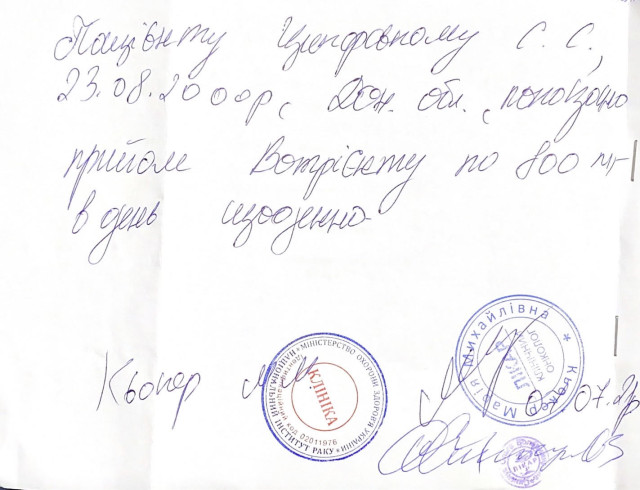 Пацієнту Цимфровному С. С.,
23.08.2000р., Дон. обл., показано
прийом Вотрієнту по 800 мг
в день щоденно
Кьокер М М
МІНІСТЕРСТВО ОХОРОНИ ЗДОРОВ'Я УКРАЇНИ * НАЦІОНАЛЬНИЙ ІНСТИТУТ РАКУ *
Ідентифікаційний код 02011976
КЛІНІКА
* Кьокер Марія Михайлівна
ЛІКАР
КЛІНІЧНИЙ
ОНКОЛОГ
07.